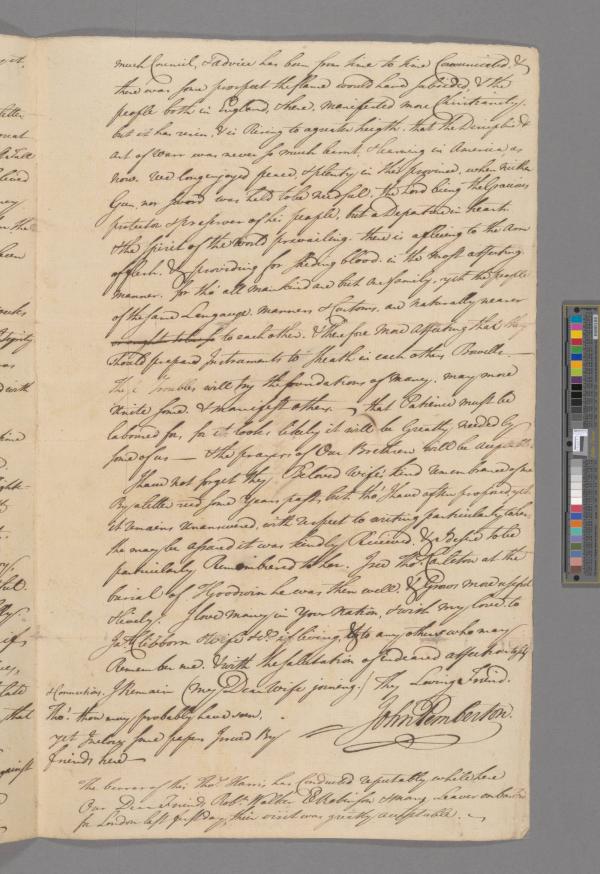 much Council, & advice has been from time to time Communicated, &
there was some prospect the flame would have subsided, & the
people both in England, & here, manifested more Christianity,
but it has risen, & is Rising to a greater heigth, that the Discipline &
art of Warr was never so much learnt, & learning in America as
now. We long enjoyed peace, & plenty in this province, when neither
Gun, nor Sword was held to be needful, the Lord being the Gracious
protector & preserver of his people, but a Departure in heart
& the Spirit of the World prevailing, there is a fleeing to the Arm
of flesh, & providing for sheding blood in the most affecting
manner. for tho' all mankind are but one family, yet the people
of the same Language, manners & Customs, are naturally nearer
to each other, & therefore more affecting that they
should prepare Instruments to Sheath in each others Bowells.
These Troubles will try the foundations of many, may more
Unite some, & manifest others, that Patience must be
laboured for, for it looks likely it will be Greatly needed by
some of us — & the prayers of Our Brethren will be acceptable
I have not forgot thy Beloved Wife's kind remembrance of me
By a letter recd some Years past, but tho' I have often proposed, yet
it remains Unanswered, with respect to writing particularly
she may be assured it was kindly Received, & a Desire to be
particularly Remembered to her. I see Thos. Carleton at the
burial of Goodwin he was then well, & Grows more useful
& lively. I love many in Your Nation, & wish my love to
Jas. Clibborn & Wife &c. if living, & to any others who may
Remember me. & with the salutation of endeared affection
& Connection, I Remain (my Dear Wife joining) Thy Loving Friend.
John Pemberton
Tho' thou may probably have seen,
yet Inclose some papers Issued By
friends here —
The bearer of this Thos. Harris has Conducted reputably while here
Our Dear Friends Robt. Walker E Robinson & Mary Leaver embarked
for London last first day, their visit was greatly acceptable.